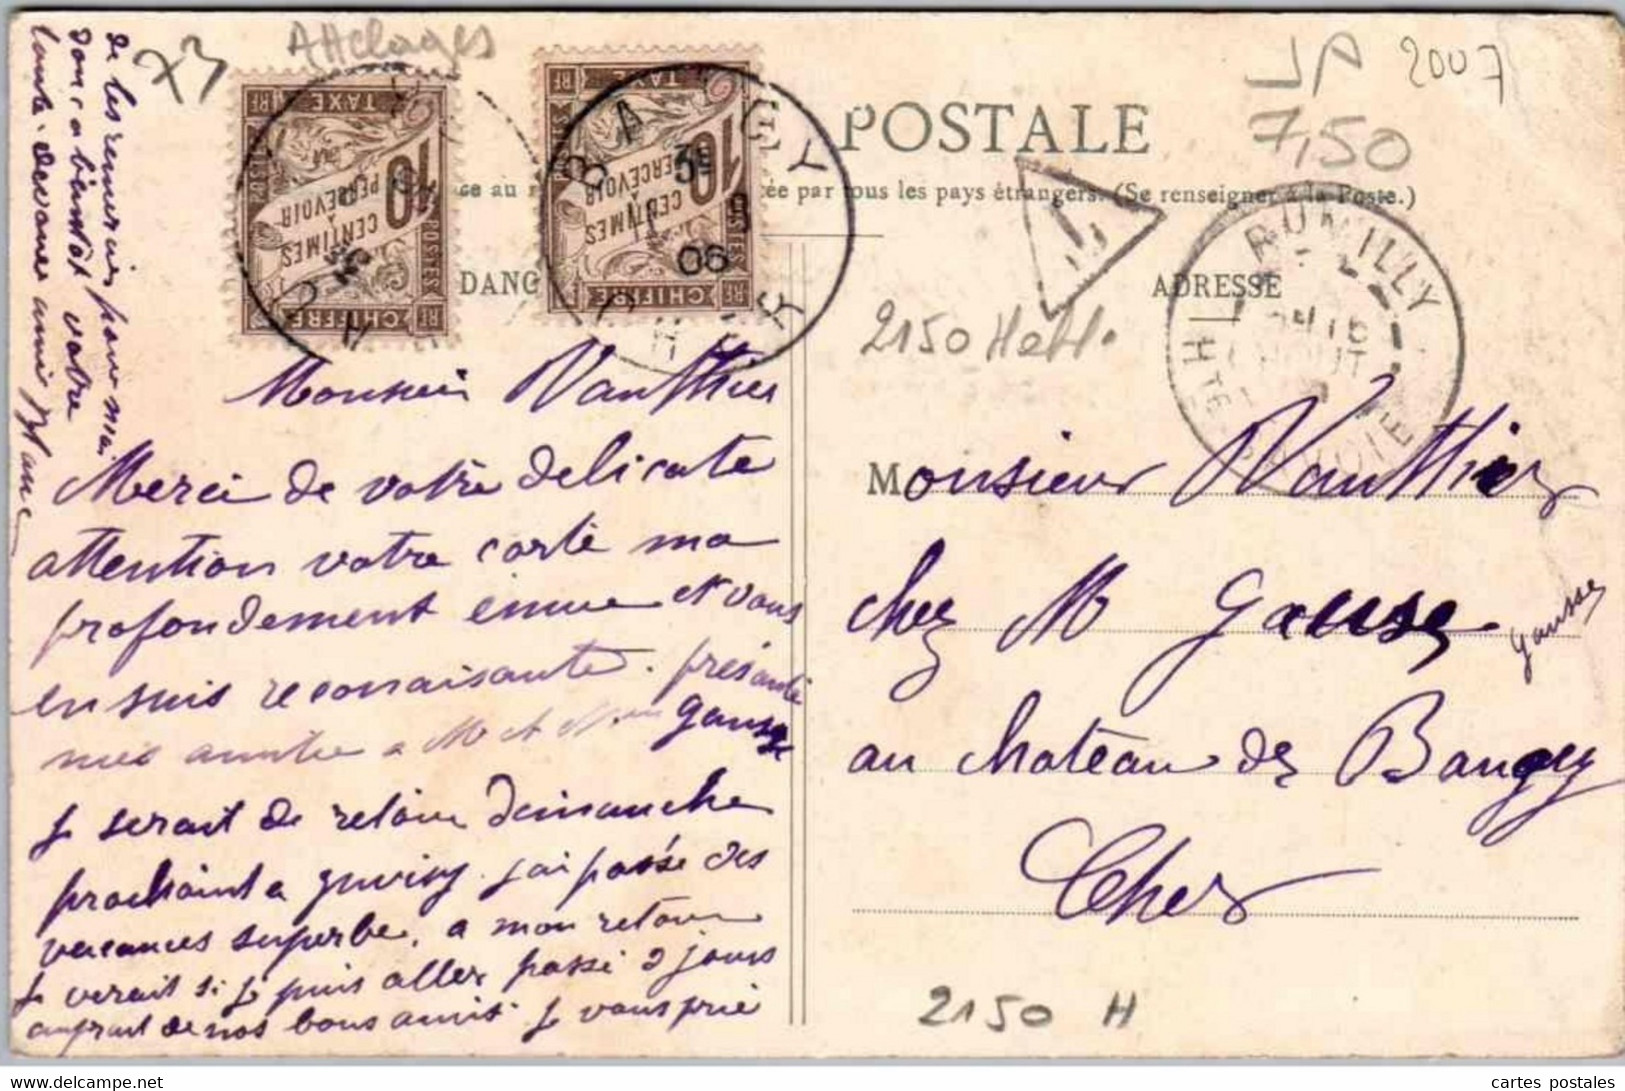 de les remercier pour moi
donc a bientôt votre
toute devouée amie Blanc
73
Attelages
JP 2007
7,50
POSTALE
par tous les pays étrangers. (Se renseigner à la Poste.)
RF TAXE
10 CENTIMES A PERCEVOIR
POSTES
CHIFFRE RF
RF TAXE
10 CENTIMES A PERCEVOIR
POSTES
CHIFFRE RF
BAUGY
06
CHER
T
RUMILLY
AOUT
HTE SAVOIE
ADRESSE
2150 H
Monsieur Vautthier
Merci de votre delicate
attention votre carte ma
profondement emue et vous
en suis reconnaisante. presante
mes amitie a M et Mme Gausse
Je serait de retour Dimanche
prochaint a Juvisy. J'ai passée des
vacances superbe, a mon retour
Je verait si je puis aller passé 2 jours
auprait de nos bons amis. Je vous prie
Monsieur Vautthier
chez M Gausse
Gausse
au Chateau de Baugy
Cher
2150 H
cartes postales